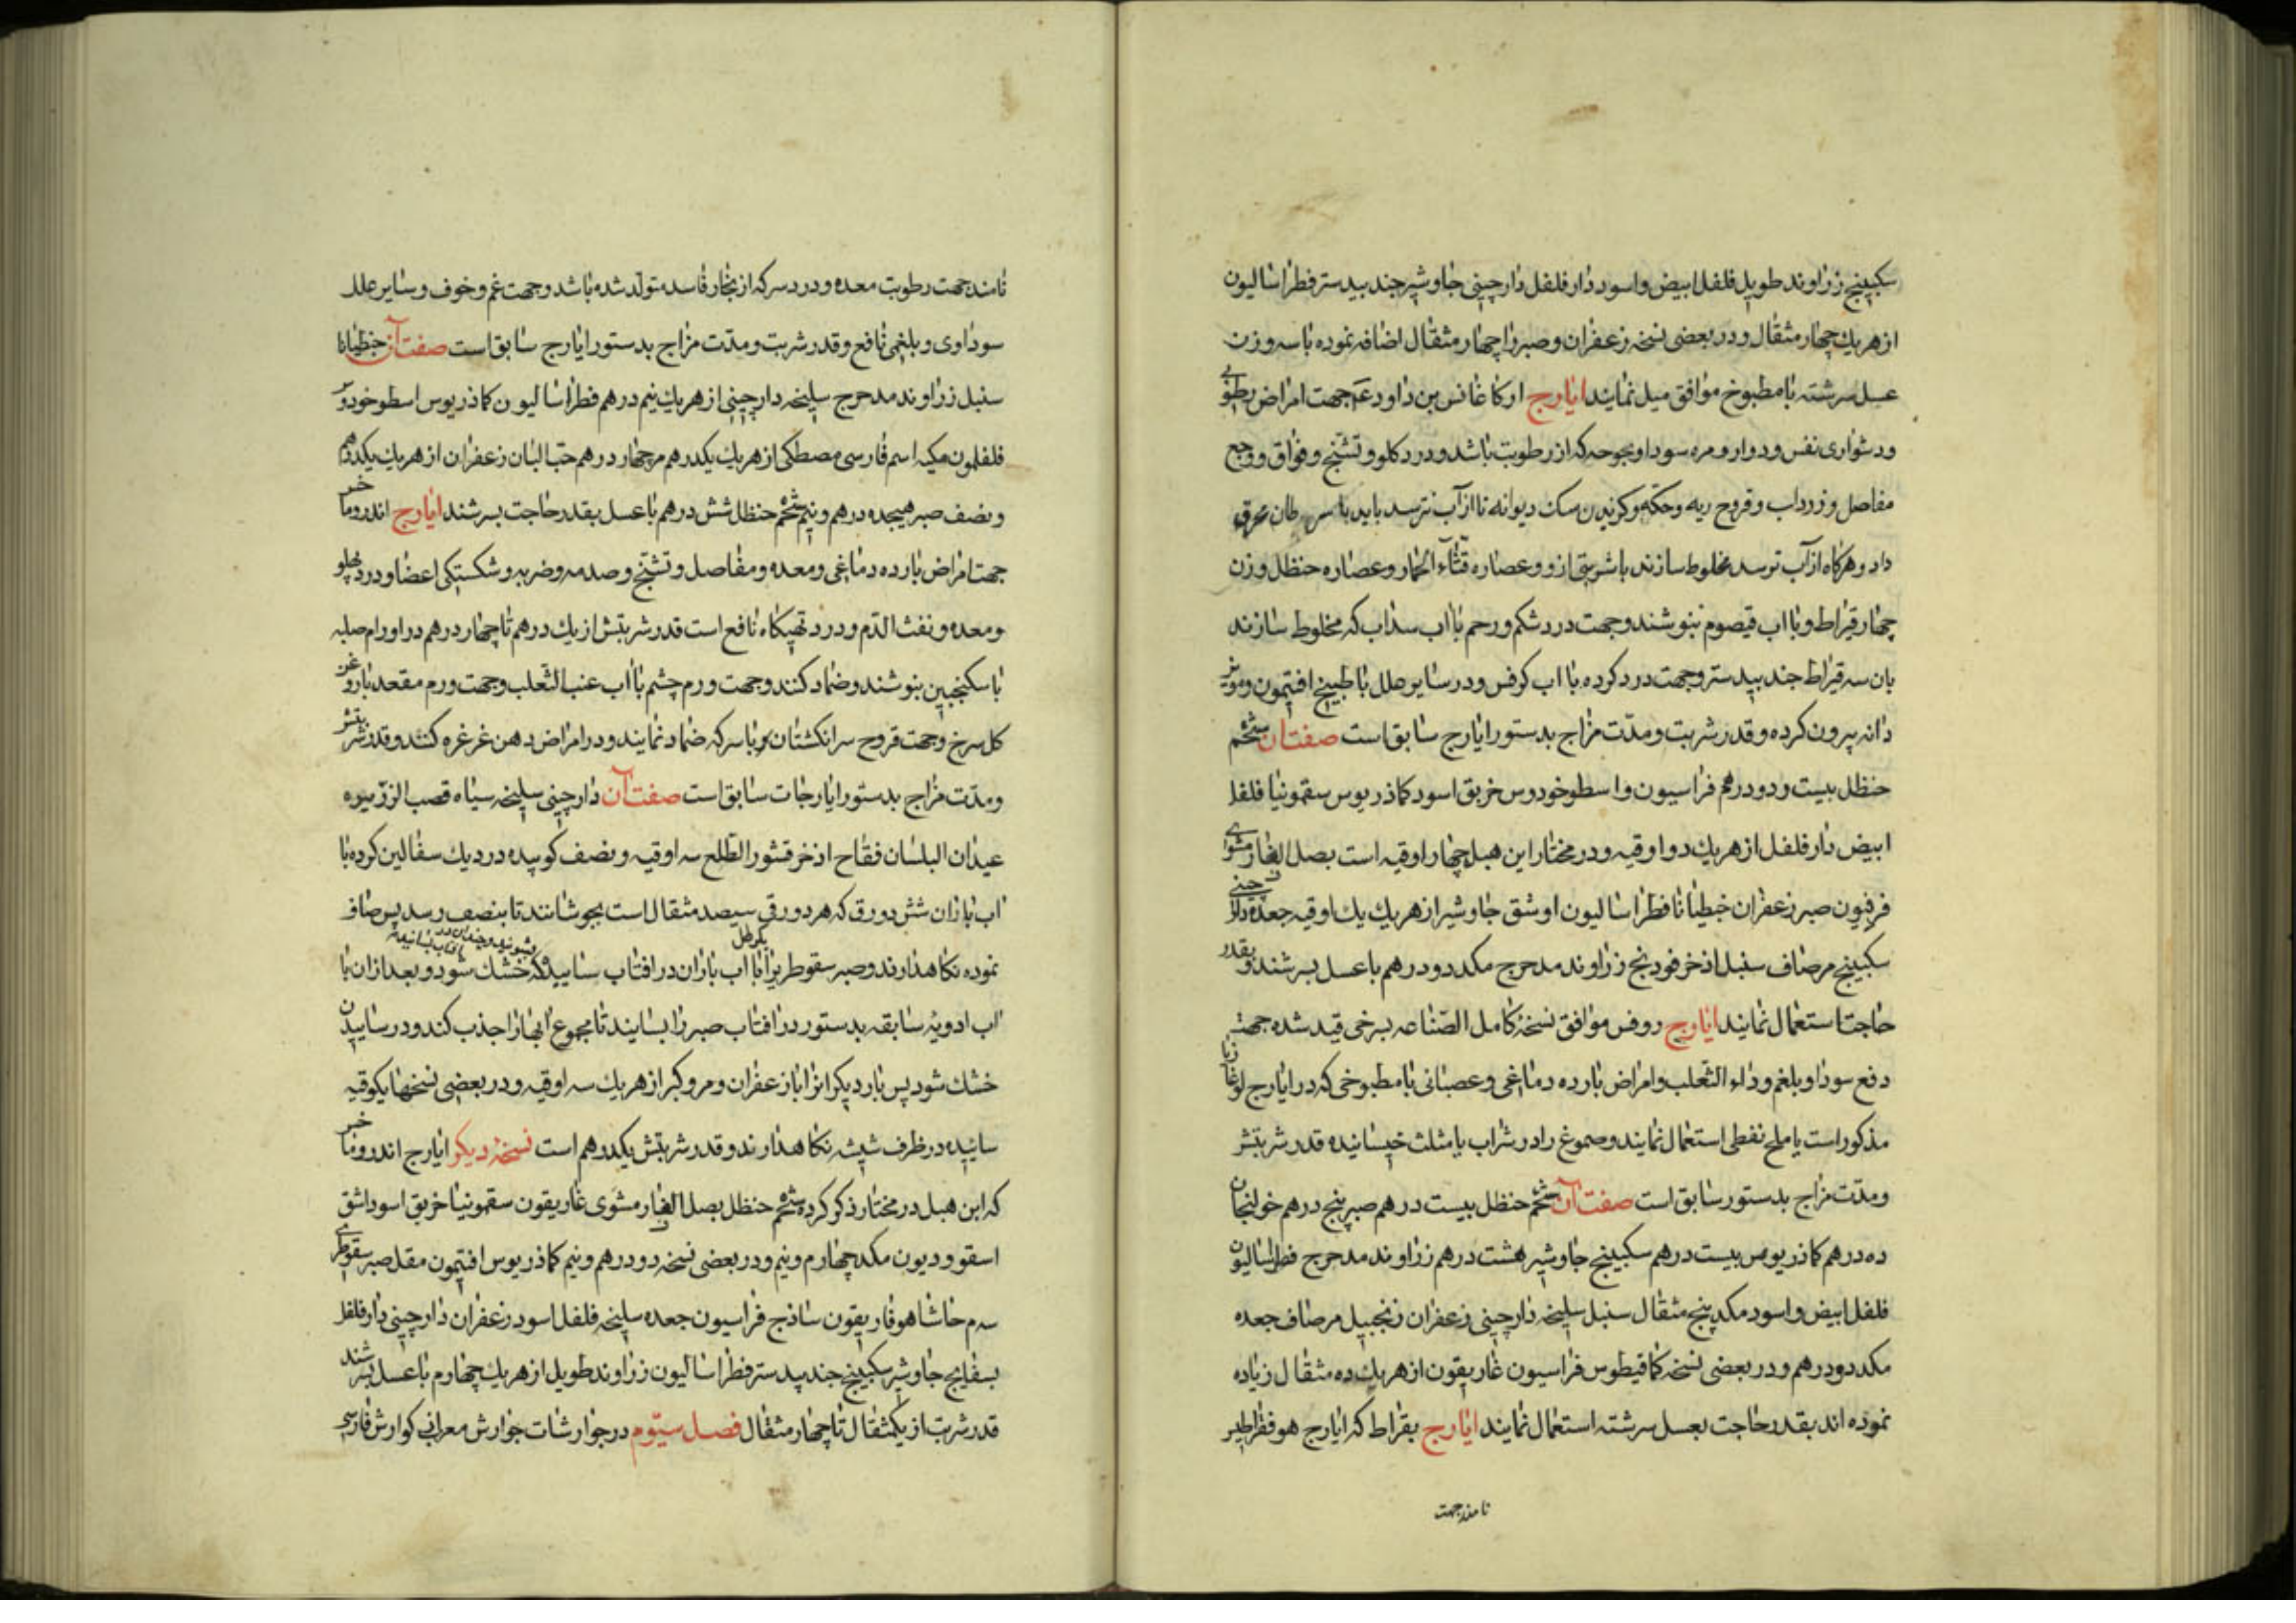 سکبینج زراوند طویل فلفل ابیض و اسود دار فلفل دارچینی جاوشیر جند بیدستر فطراسالیون
از هر یك چهار مثقال و در بعضی نسخه زعفران و صبر را چهار مثقال اضافه نموده با سه وزن
عسل سرشته با مطبوخ موافق میل نمایند ایارج ارکاغانس بن داود عم جهت امراض رطوبی
و دشواری نفس و دوار و مره سودا و بحوحه که از رطوبت باشد و درد کلو و تشنج و فواق و وجع
مفاصل و زرداب و قروح ریه و حکه و کزیدن سك دیوانه تا از آب نترسد باید با سرطان محرق
داد و هرکاه از آب ترسد مخلوط سازند با شربتی ازو و عصاره قثاء الحمار و عصاره حنظل وزن
چهار قیراط و با اب قیصوم بنوشند و جهت درد شکم و رحم با اب سداب که مخلوط سازند
بان سه قیراط جند بیدستر و جهت درد کرده با اب کرفس و در سایر علل با طبیخ افتیمون و مویز
دانه بیرون کرده و قدر شربت و مدت مزاج بدستور ایارج سابق است صفت ان شحم
حنظل بیست و دو درهم فراسیون و اسطوخودوس خربق اسود کماذریوس سقمونیا فلفل
ابیض دار فلفل از هر یك دو اوقیه و در مختار ابن هبل چهار اوقیه است بصل الفار مشوی
فرفیون صبر زعفران جنطیانا فطراسالیون اوشق جاوشیر از هر یك یك اوقیه جعده دارچینی
سکبینج مر صاف سنبل اذخر فودنج زراوند مدحرج مکد دو درهم با عسل بسرشند و بقدر
حاجت استعمال نمایند ایارج روفس موافق نسخهٔ کامل الصناعه بسرخی قید شده جهت
دفع سودا و بلغم و داء الثعلب و امراض بارده دماغی و عصبانی با مطبوخی که در ایارج لوغاذیا
مذکور است یا ملح نفطی استعمال نمایند و صموغ را در شراب یا مثلث خیسانیده قدر شربتش
و مدت مزاج بدستور سابق است صفت آن شحم حنظل بیست درهم صبر پنج درهم خولنجان
ده درهم کماذریوس بیست درهم سکبینج جاوشیر هشت درهم زراوند مدحرج فطراسالیون
فلفل ابیض و اسود مکد پنج مثقال سنبل سلیخه دارچینی زعفران زنجبیل مر صاف جعده
مکد دو درهم و در بعضی نسخه کمافیطوس فراسیون غاریقون از هر یك ده مثقال زیاده
نموده اند بقدر حاجت بعسل سرشته استعمال نمایند ایارج بقراط که ایارج هوفقراطیر
نامند جهت
نامند جهت رطوبت معده و درد سر که از بخار فاسد متولد شده باشد و جهت غم و خوف و سایر علل
سوداوی و بلغمی نافع و قدر شربت و مدت مزاج بدستور ایارج سابق است صفت آن جنطیانا
سنبل زراوند مدحرج سلیخه دارچینی از هر یك نیم درهم فطراسالیون کماذریوس اسطوخودوس
فلفلمون مکیه اسم فارسی مصطکی از هر یك یکدرهم مر چهار درهم حب البان زعفران از هر یك یکدرهم
و نصف صبر هیجده درهم و نیم شحم حنظل شش درهم با عسل بقدر حاجت بسرشند ایارج اندروماخس
جهت امراض بارده دماغی و معده و مفاصل و تشنج و صدمه و ضربه و شکستکی اعضا و درد پهلو
و معده و نفث الدم و درد تهیکاه نافع است قدر شربتش از یك درهم تا چهار درهم در اورام صلبه
با سکنجبین بنوشند و ضماد کنند و جهت ورم چشم با اب عنب الثعلب و جهت ورم مقعد با روغن
کل سرخ و جهت قروح سر انکشتان با سرکه ضماد نمایند و در امراض دهن غرغره کنند و قدر شربتش
و مدت مزاج بدستور ایارجات سابق است صفت آن دارچینی سلیخه سیاه قصب الزریره
عیدان البلسان فقاح اذخر قشور الطلع سه اوقیه و نصف کوبیده در دیك سفالین کرده با
اب باران شش دورق که هر دورقی سیصد مثقال است بجوشانند تا بنصف رسد پس صاف
نموده نکاهدارند و صبر سقوطری یکرطل را با اب باران در افتاب ساییده که خشك شود و بعد ازان با
اب ادویهٔ سابقه بدستور در افتاب صبر را بسایند تا مجموع ابها را جذب کند و در ساییدن
خشك شود پس بار دیکر انرا با زعفران و مر و کبر از هر یك سه اوقیه و در بعضی نسخها یکوقیه
ساییده در ظرف شیشه نکاهدارند و قدر شربتش یکدرهم است نسخهٔ دیکر ایارج اندروماخس
که ابن هبل در مختار ذکر کرده شحم حنظل بصل الفار مشوی غاریقون سقمونیا خربق اسود اشق
اسقوردیون مکد چهارم و نیم و در بعضی نسخه دو درهم و نیم کماذریوس افتیمون مقل صبر سقوطری
سه م حاشا هوفاریقون ساذج فراسیون جعده سلیخه فلفل اسود زعفران دارچینی دار فلفل
بسفایج جاوشیر سکبینج جند بیدستر فطراسالیون زراوند طویل از هر یك چهارم با عسل بسرشند
قدر شربت از یکمثقال تا چهار مثقال فصل سیوم در جوارشات جوارش معرب کوارش فارسی